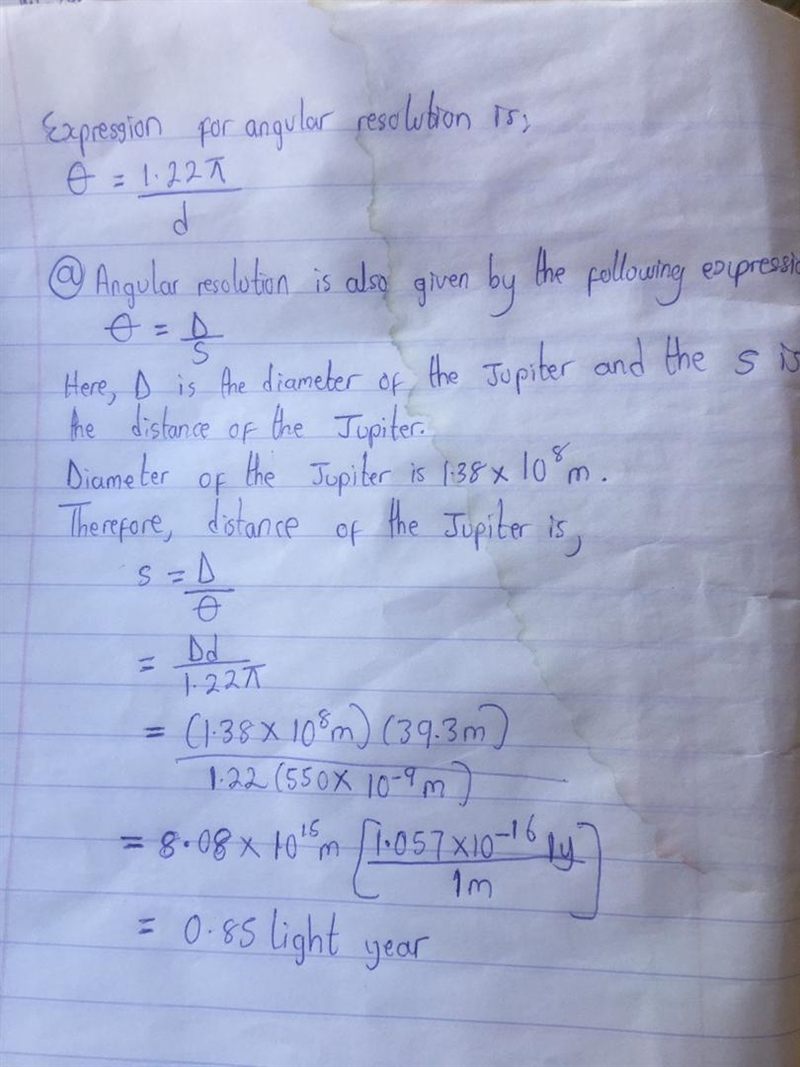 Expression for angular resolution is,
θ = 1.22π / d
@ Angular resolution is also given by the following expressio
θ = D / S
Here, D is the diameter of the Jupiter and the S is
the distance of the Jupiter.
Diameter of the Jupiter is 1.38 x 10^8 m.
Therefore, distance of the Jupiter is,
S = D / θ
= Dd / 1.22π
= (1.38 x 10^8 m) (39.3m) / 1.22 (550 x 10^-9 m)
= 8.08 x 10^15 m [1.057 x 10^-16 ly / 1m]
= 0.85 light year